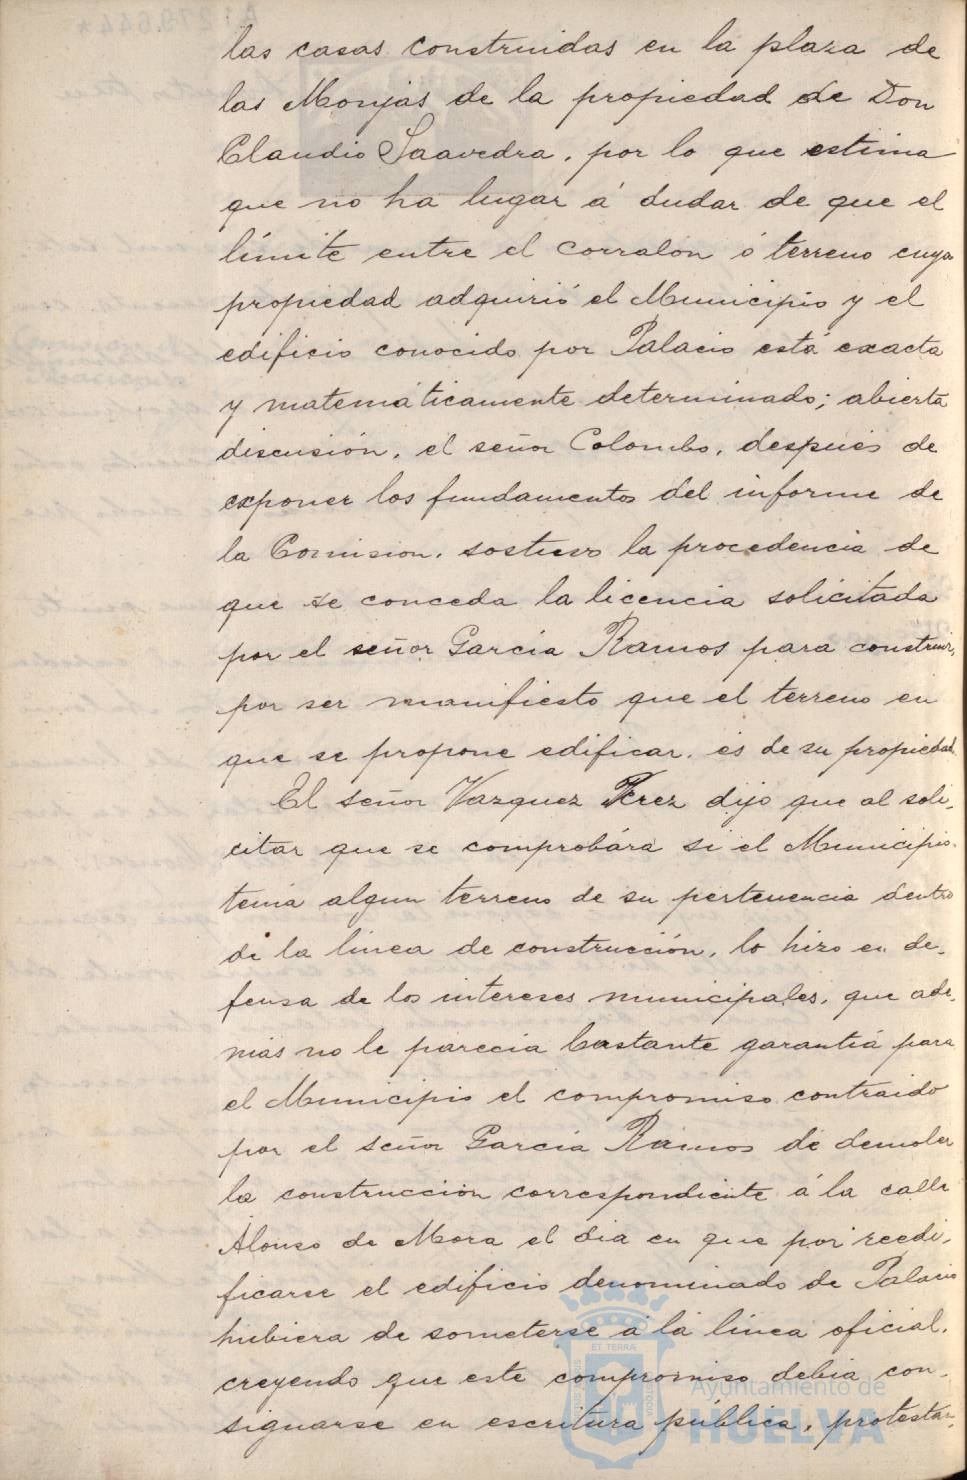 las casas construidas en la plaza de
las Monjas de la propiedad de Don
Claudio Saavedra, por lo que estima
que no ha lugar á dudar de que el
límite entre el corralón ó terreno cuya
propiedad adquirió el Municipio y el
edificio conocido por Palacio está exacta
y matemáticamente determinado; abierta
discusión, el señor Colombo, después de
exponer los fundamentos del informe de
la Comision, sostuvo la procedencia de
que se conceda la licencia solicitada
por el señor García Ramos para construir,
por ser manifiesto que el terreno en
que se propone edificar, es de su propiedad.
El señor Vazquez Perez dijo que al soli-
citar que se comprobára si el Municipio
tenia algun terreno de su pertenencia dentro
de la línea de construcción, lo hizo en de-
fensa de los intereses municipales, que ade-
más no le parecía bastante garantiá para
el Municipio el compromiso contraido
por el señor García Ramos de demoler
la construcción correspondiente á la calle
Alonso de Mora el dia en que por reedi-
ficarse el edificio denominado de Palacio
hubiera de someterse á la línea oficial,
creyendo que este compromiso debia con-
signarse en escritura pública, protestan-
ET TERRÆ
Ayuntamiento de
HUELVA